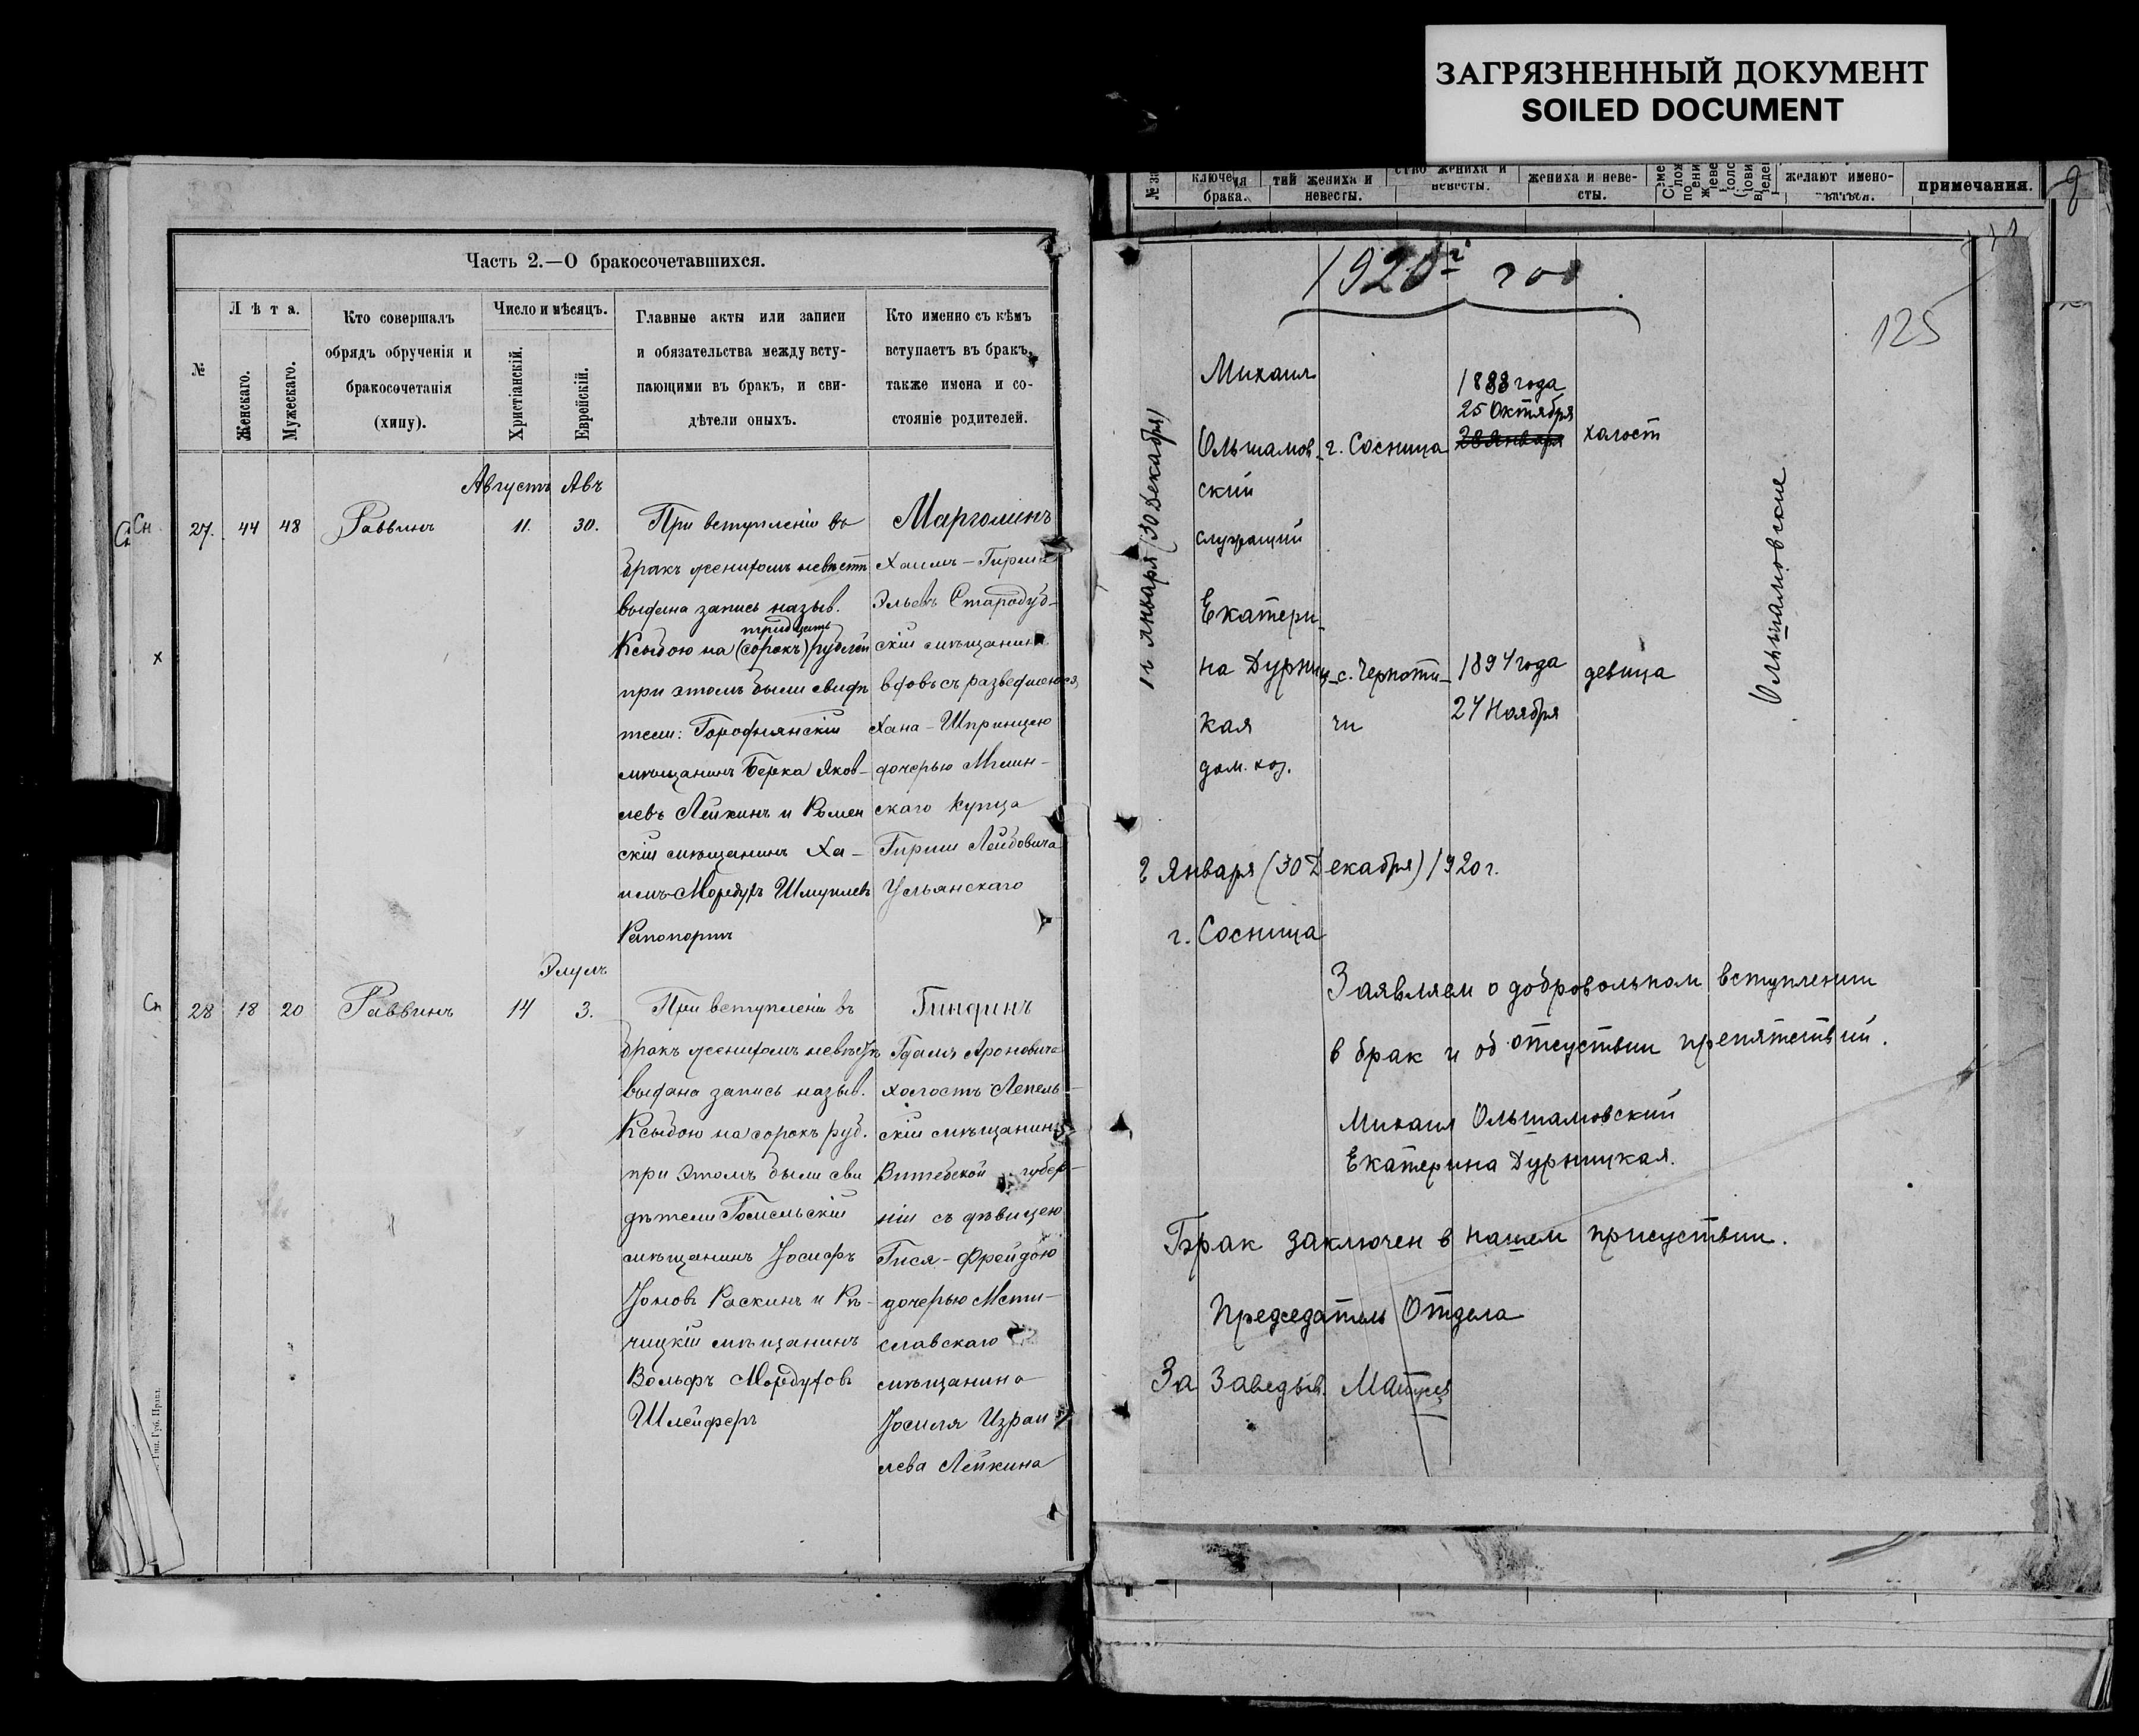 ЗАГРЯЗНЕННЫЙ ДОКУМЕНТ
SOILED DOCUMENT
Часть 2.—О бракосочетавшихся.
№
Лѣта.
Женскаго.
Мужескаго.
Кто совершалъ
обрядъ обрученія и
бракосочетанія
(хипу).
Число и мѣсяцъ.
Христіанскій.
Еврейскій.
Главные акты или записи
и обязательства между всту-
пающими въ бракъ, и сви-
дѣтели оныхъ.
Кто именно съ кѣмъ
вступаетъ въ бракъ,
также имена и со-
стояніе родителей.
Августъ Авъ
Сн
27. 44 48 Раввинъ 11. 30.
При вступленіи въ
бракъ женихомъ невѣстѣ
выдана запись назыв.
тридцать
Ксыбою на (сорокъ) рублей
при этомъ были свидѣ
тели: Городнянскій
мѣщанинъ Берка Яков-
левъ Лейкинъ и Ромен
скій мѣщанинъ Ха-
имъ-Мордухъ Шмуилевъ
Рапопортъ
Марголинъ
Хаимъ-Гирша
Эльевъ Стародуб-
скій мѣщанинъ
вдовъ съ разведшеюся,
Хана-Шпринцею
дочерью Мглин-
скаго купца
Гирши Лейбовича
Усльянскаго
х
Элулъ
Сн
28 18 20 Раввинъ 14 3.
При вступленіи въ
бракъ женихомъ невѣстѣ
выдана запись назыв.
Ксыбою на сорокъ руб.
при этомъ были сви
дѣтели Гомельскій
мѣщанинъ Іосифъ
Іоновъ Раскинъ и Рѣ-
чицкій мѣщанинъ
Вольфъ Мордуховъ
Шлейферъ
Гиндинъ
Гдаля Ароновичъ
холостъ Лепель-
скій мѣщанинъ
Витебской губер-
ніи съ дѣвицею
Гися-Фрейдою
дочерью Мсти-
славскаго
мѣщанина
Іосиля Израи
лева Лейкина
Тип. Губ. Правл.
ключения
брака.
тий жениха и
невесты.
ство жениха и
невесты.
жениха и неве-
сты.
желают имено-
ваться.
примечания.
1920й год
125
12 Января (30 Декабря)
Михаил
Ольшамов-
ский
служащий
г. Сосница
1888 года
25 Октября
28 Января
холост
Ольшамовские
Екатери-
на Дурниц-
кая
дом. хоз.
с. Чернотi-
чи
1894 года
24 Ноября
девица
2 Января (30 Декабря) 1920 г.
г. Сосница
Заявляем о добровольном вступлении
в брак и об отсуствии препятствий.
Михаил Ольшамовский
Екатерина Дурницкая.
Брак заключен в нашем присуствии.
Председатель Отдела
За Заведыв.